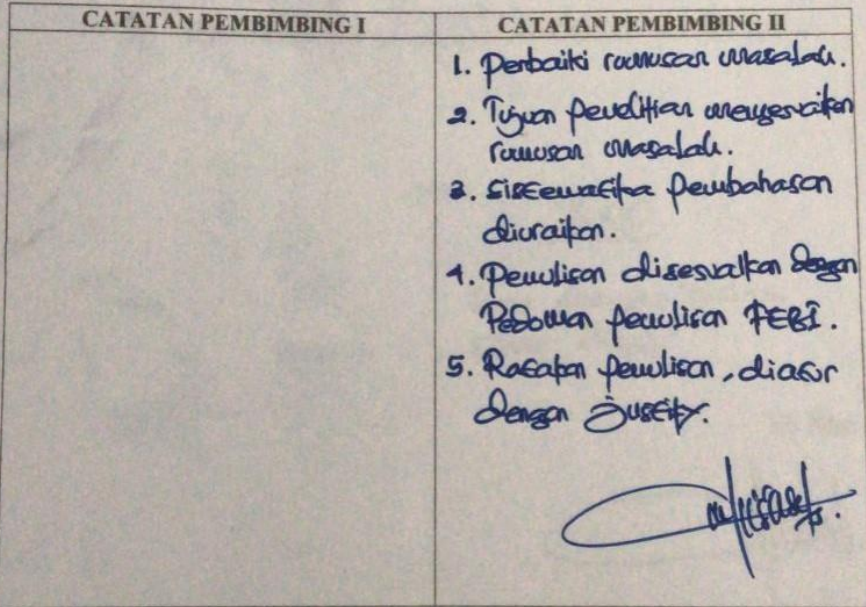 CATATAN PEMBIMBING I
CATATAN PEMBIMBING II
1. Perbaiki rumusan masalah.
2. Tujuan penelitian menyesuaikan
rumusan masalah.
3. Sistematika pembahasan
diuraikan.
4. Penulisan disesuaikan dengan
Pedoman penulisan FEBI.
5. Ratakan penulisan, diatur
dengan Justify.